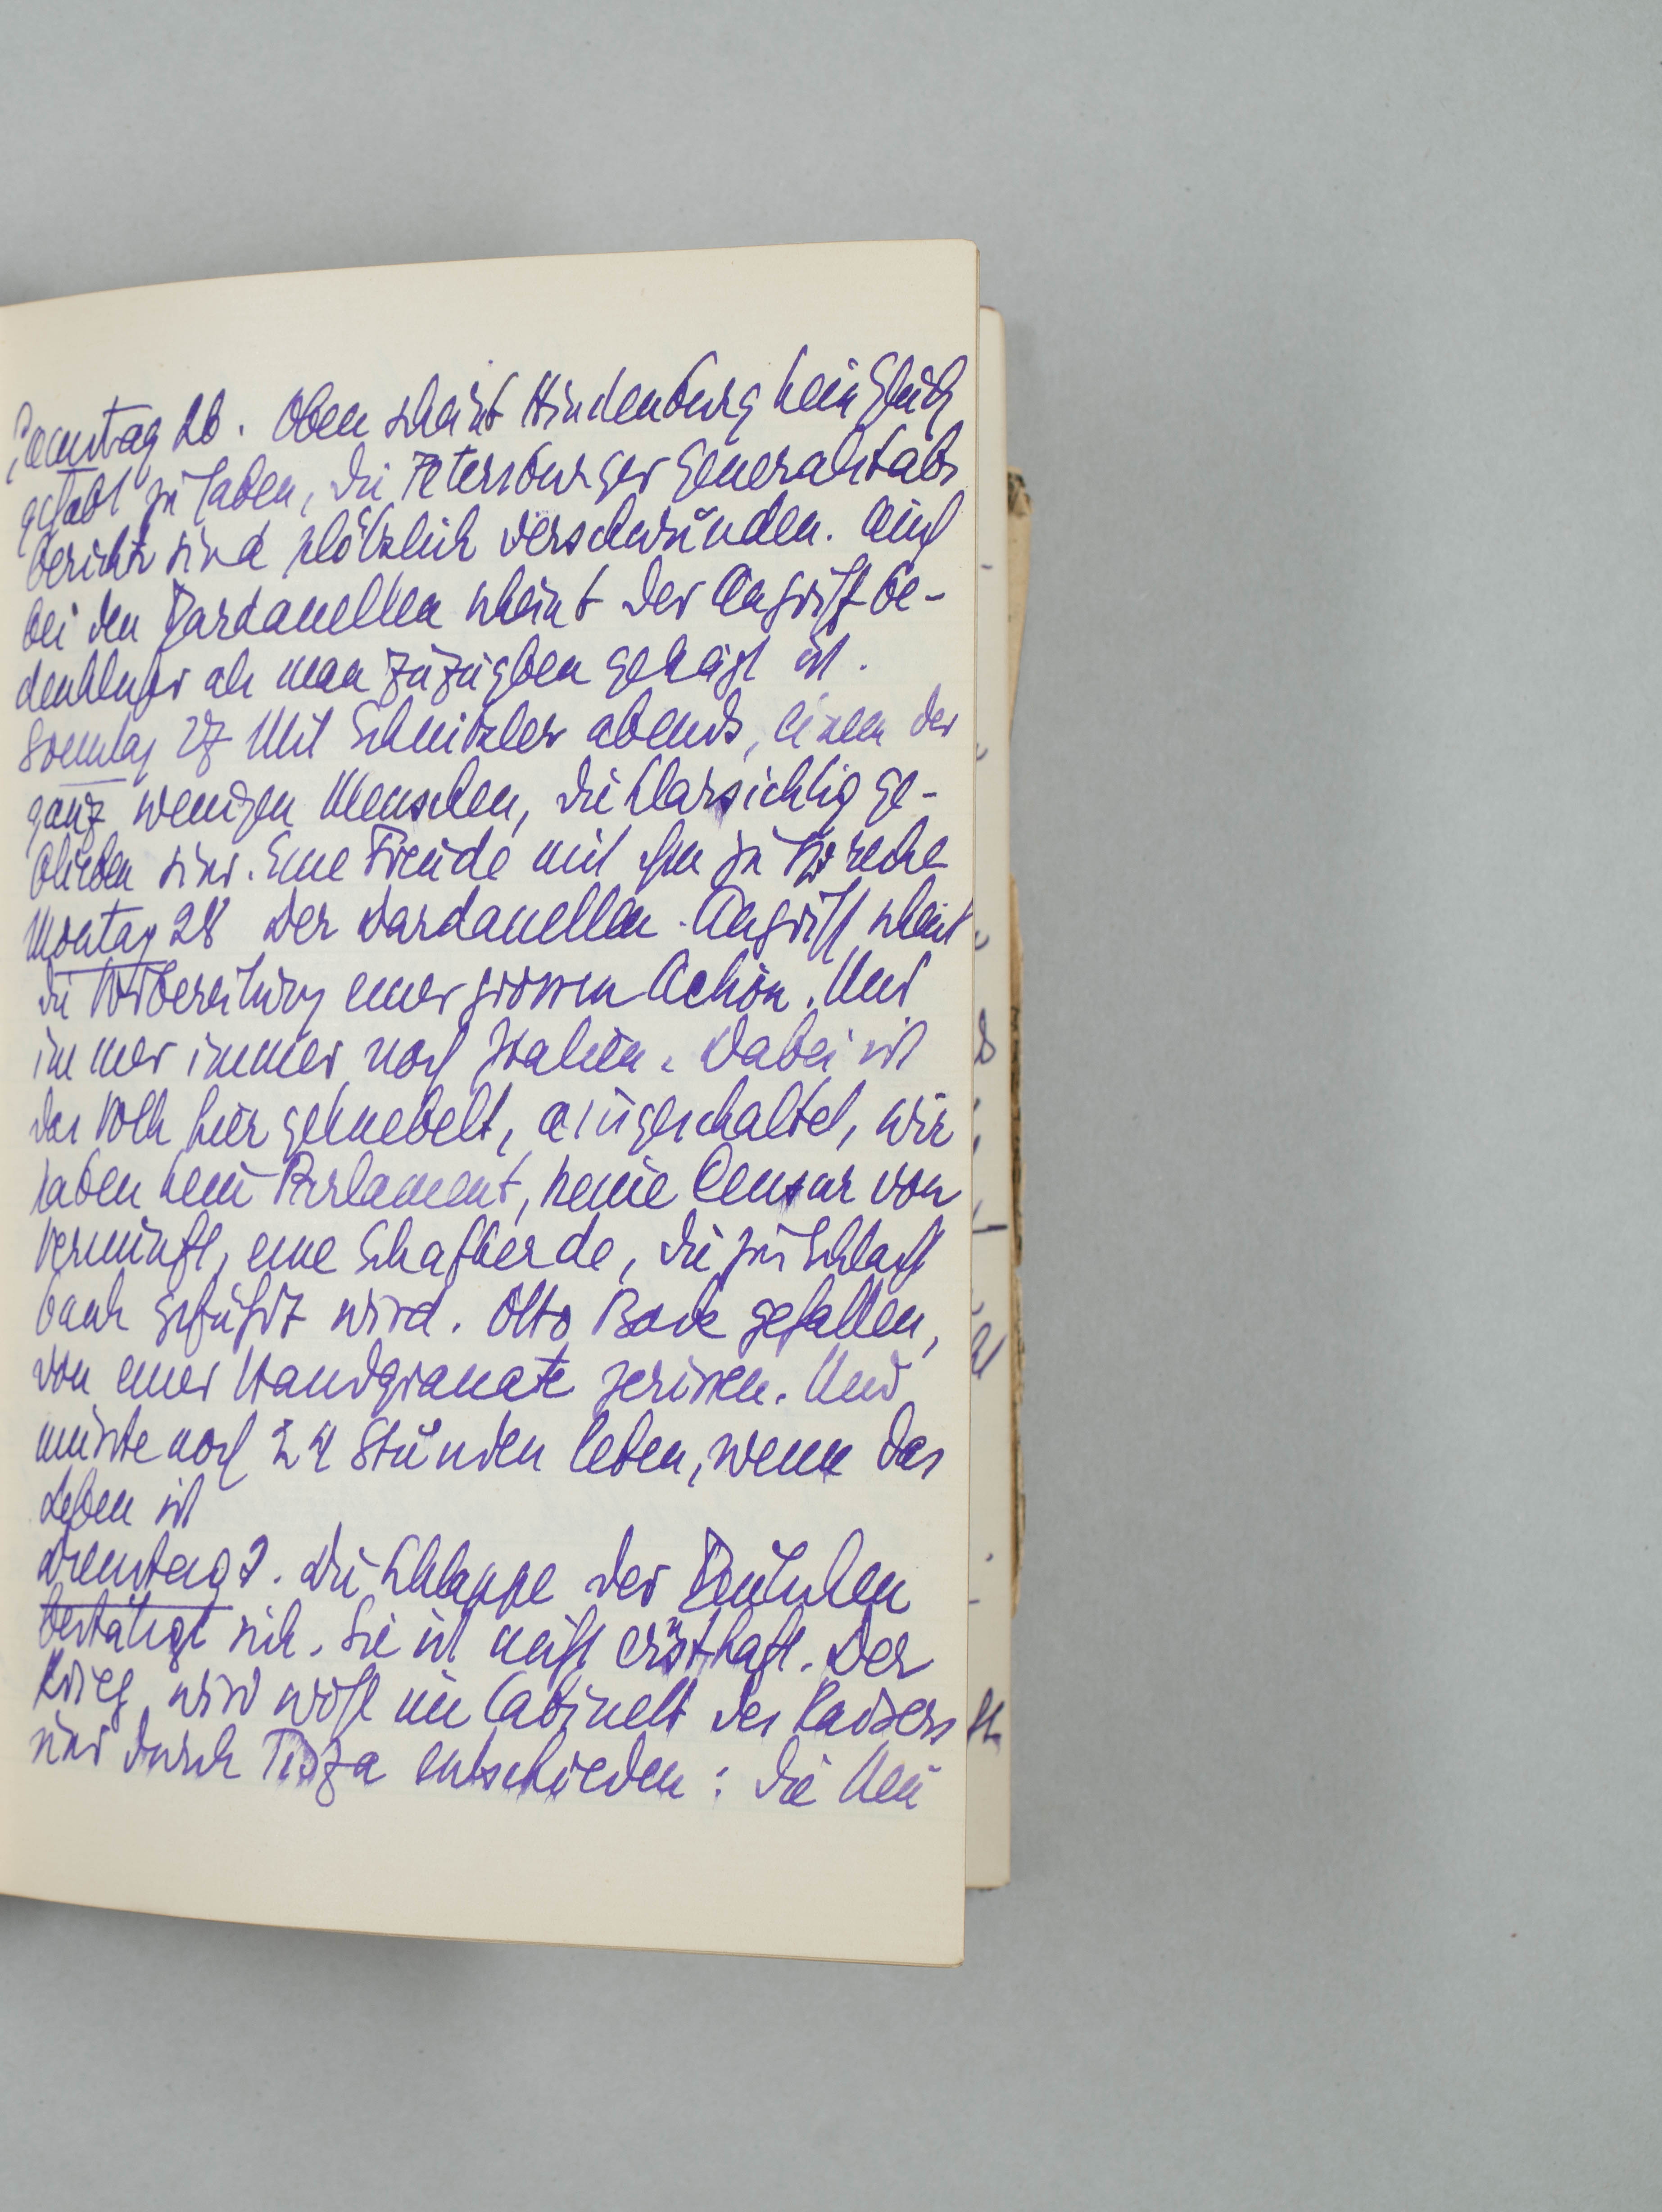 Samstag 26. Oben scheint Hindenburg kein Glück
gehabt zu haben, die Petersburger Generalstabs
berichte sind plötzlich verschwunden. Auch
bei den Dardanellen scheint der Angriff be-
denklicher als man zuzugeben geneigt ist.
Sonntag 27 Mit Schnitzler abends, einem der
ganz wenigen Menschen, die klarsichtig ge-
blieben sind. Eine Freude mit ihm zu
Montag 28 Der Dardanellen-Angriff scheint
die Vorbereitung einer grossen Action. Und
immer immer noch Italien. Dabei ist
das Volk hier geknebelt, ausgeschaltet, wir
haben kein Parlament, keine Censur von
Vernunft, eine Schafherde, die zur Schlacht
bank geführt wird. Otto gefallen,
von einer Handgranate zerissen. Und
musste noch 24 Stunden leben, wenn das
Leben ist
Dienstag. Die Schlappe der Deutschen
bestätigt sich. Sie ist nicht ernsthaft. Der
Krieg wird wohl im Cabinett des Kaisers
und durch Tisza entschieden: die Neu